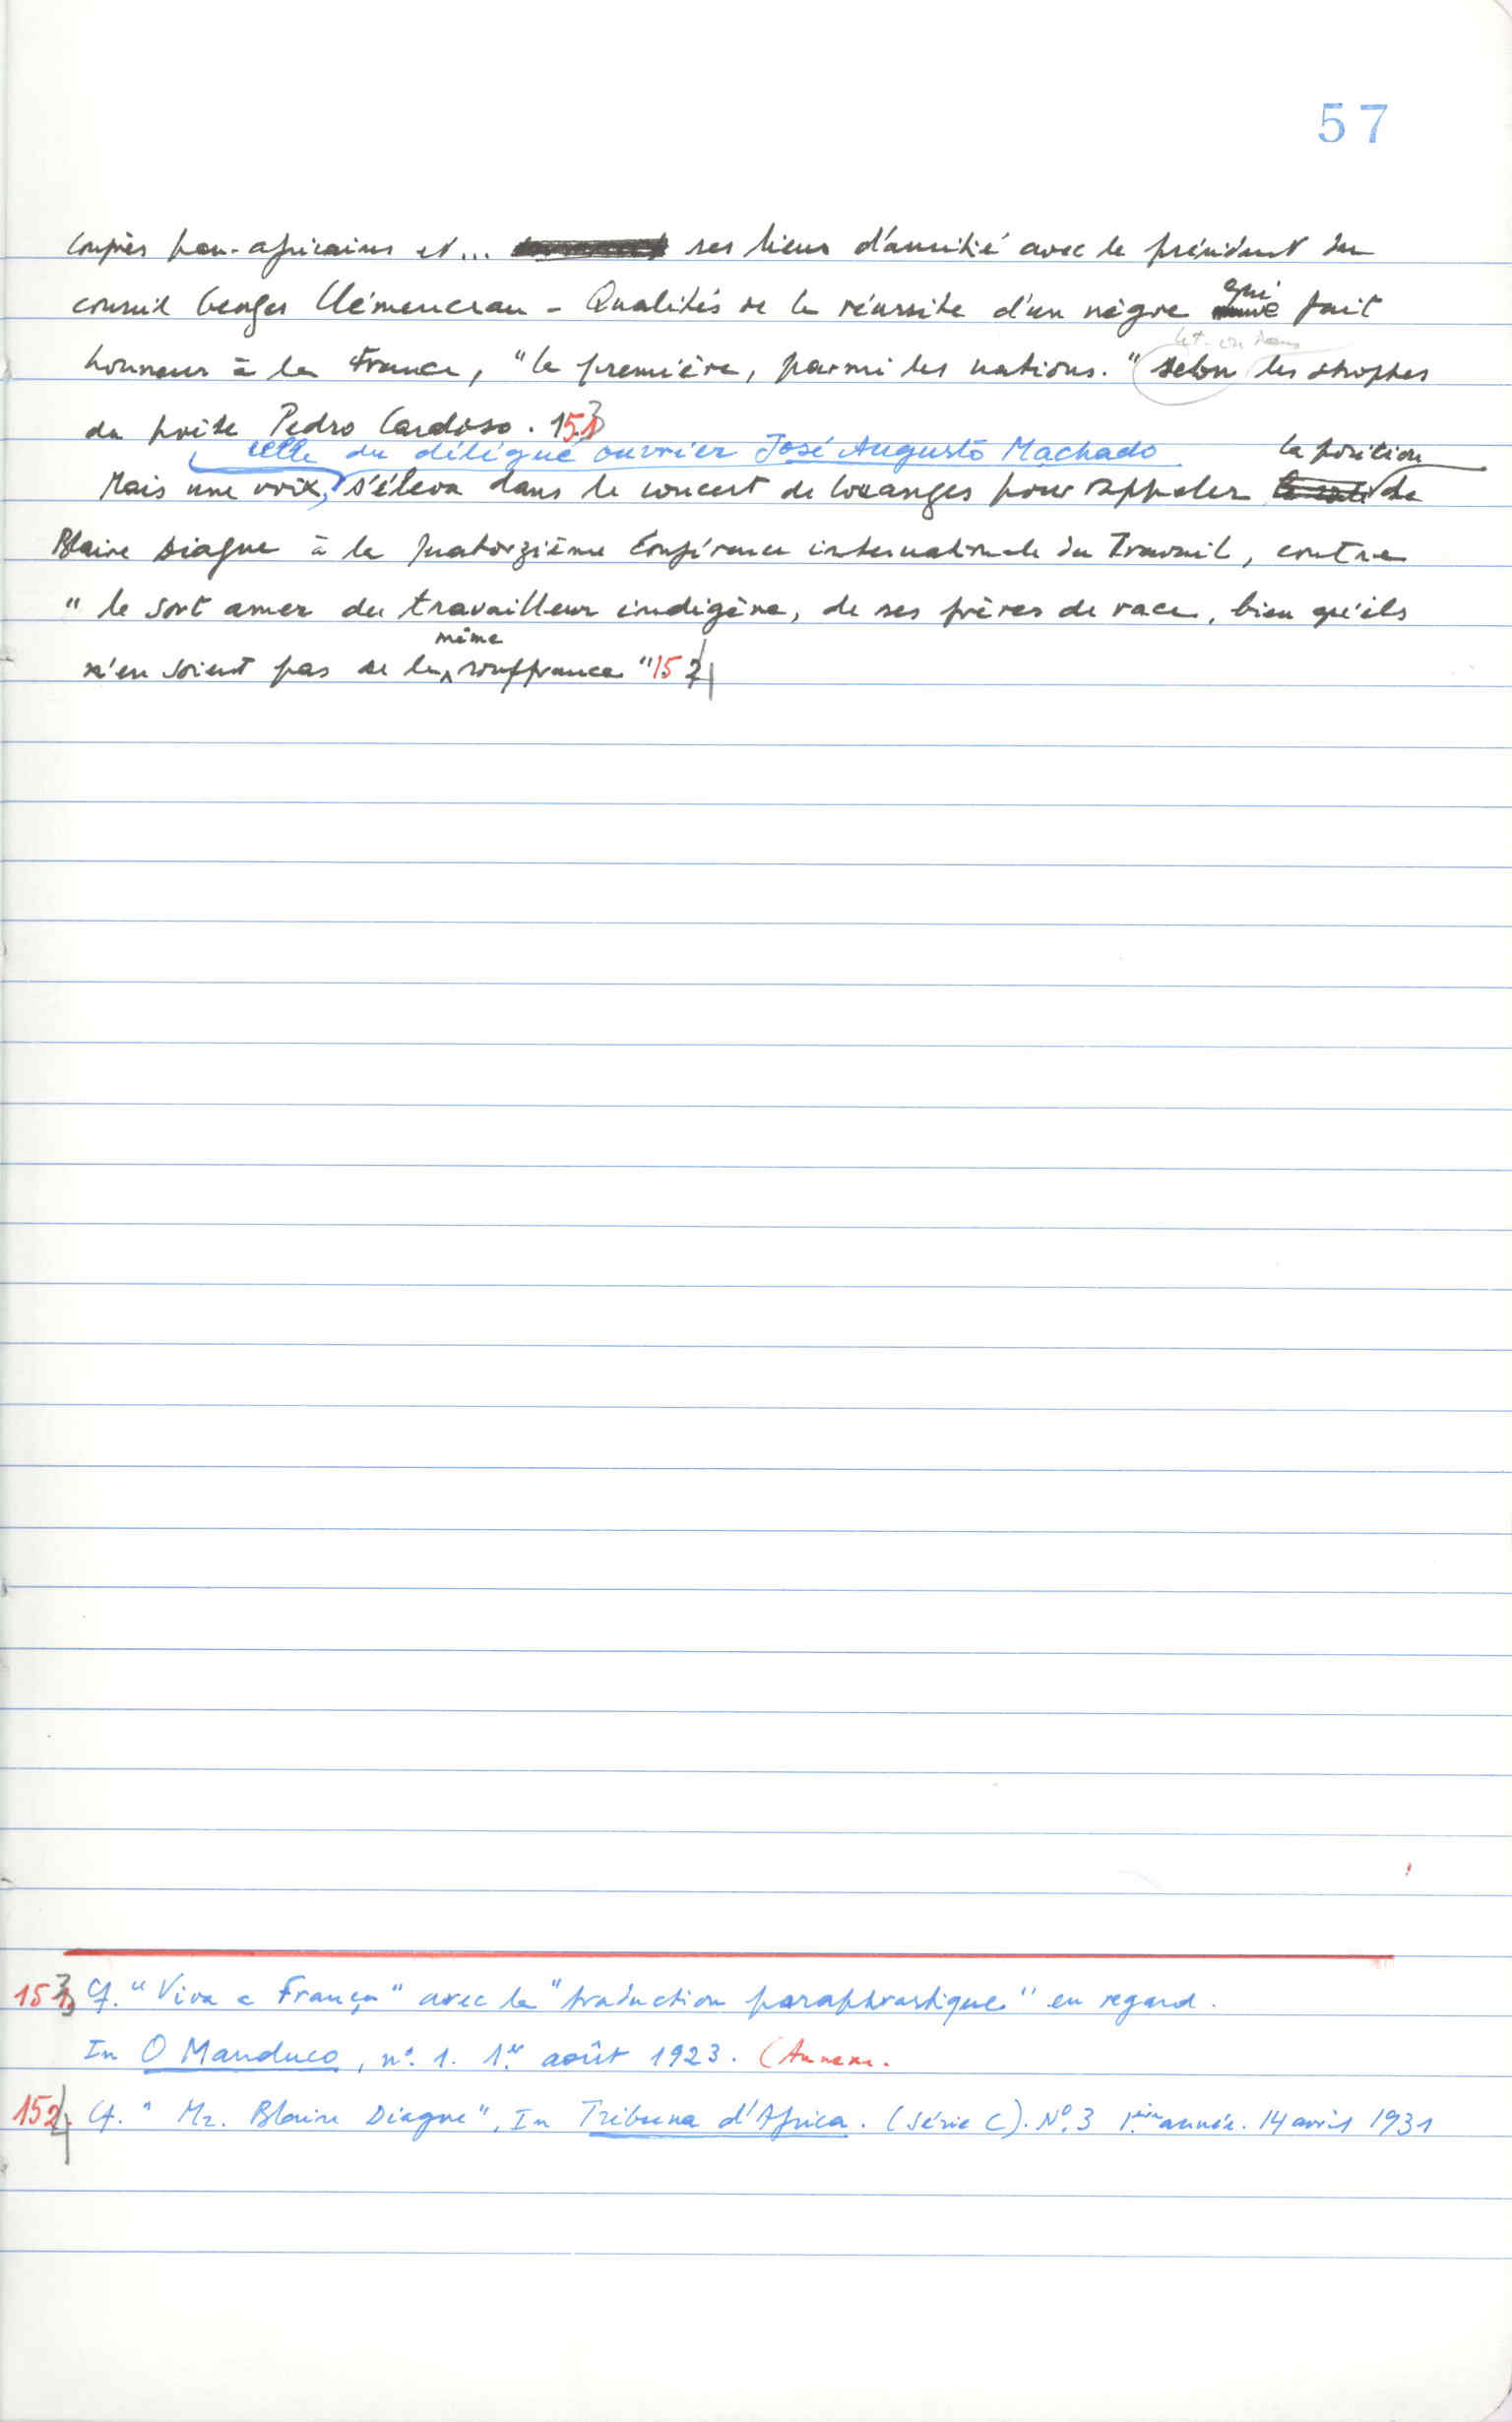 57
Congrès pan-africains et... ses liens d'amitié avec le président du
conseil Georges Clémenceau - Qualités de la réussite d'un nègre qui fait
honneur à la France, "la première, parmi les nations." selon les strophes
du poète Pedro Cardoso. 153
celle du délégué ouvrier José Augusto Machado la position
Mais une voix, s'éleva dans le concert de louanges pour rappeler de
Blaise Diagne à la quatorzième Conférence internationale du Travail, contre
"le sort amer du travailleur indigène, de ses frères de race, bien qu'ils
même
n'en soient pas de la souffrance" 154
153 Cf. "Viva a França" avec la "traduction paraphrastique" en regard.
In O Manduco, nº. 1. 1er août 1923. (Annexe.
154 Cf. "Mr. Blaise Diagne", In Tribuna d'Africa. (Série C). Nº. 3 1ère année. 14 avril 1931